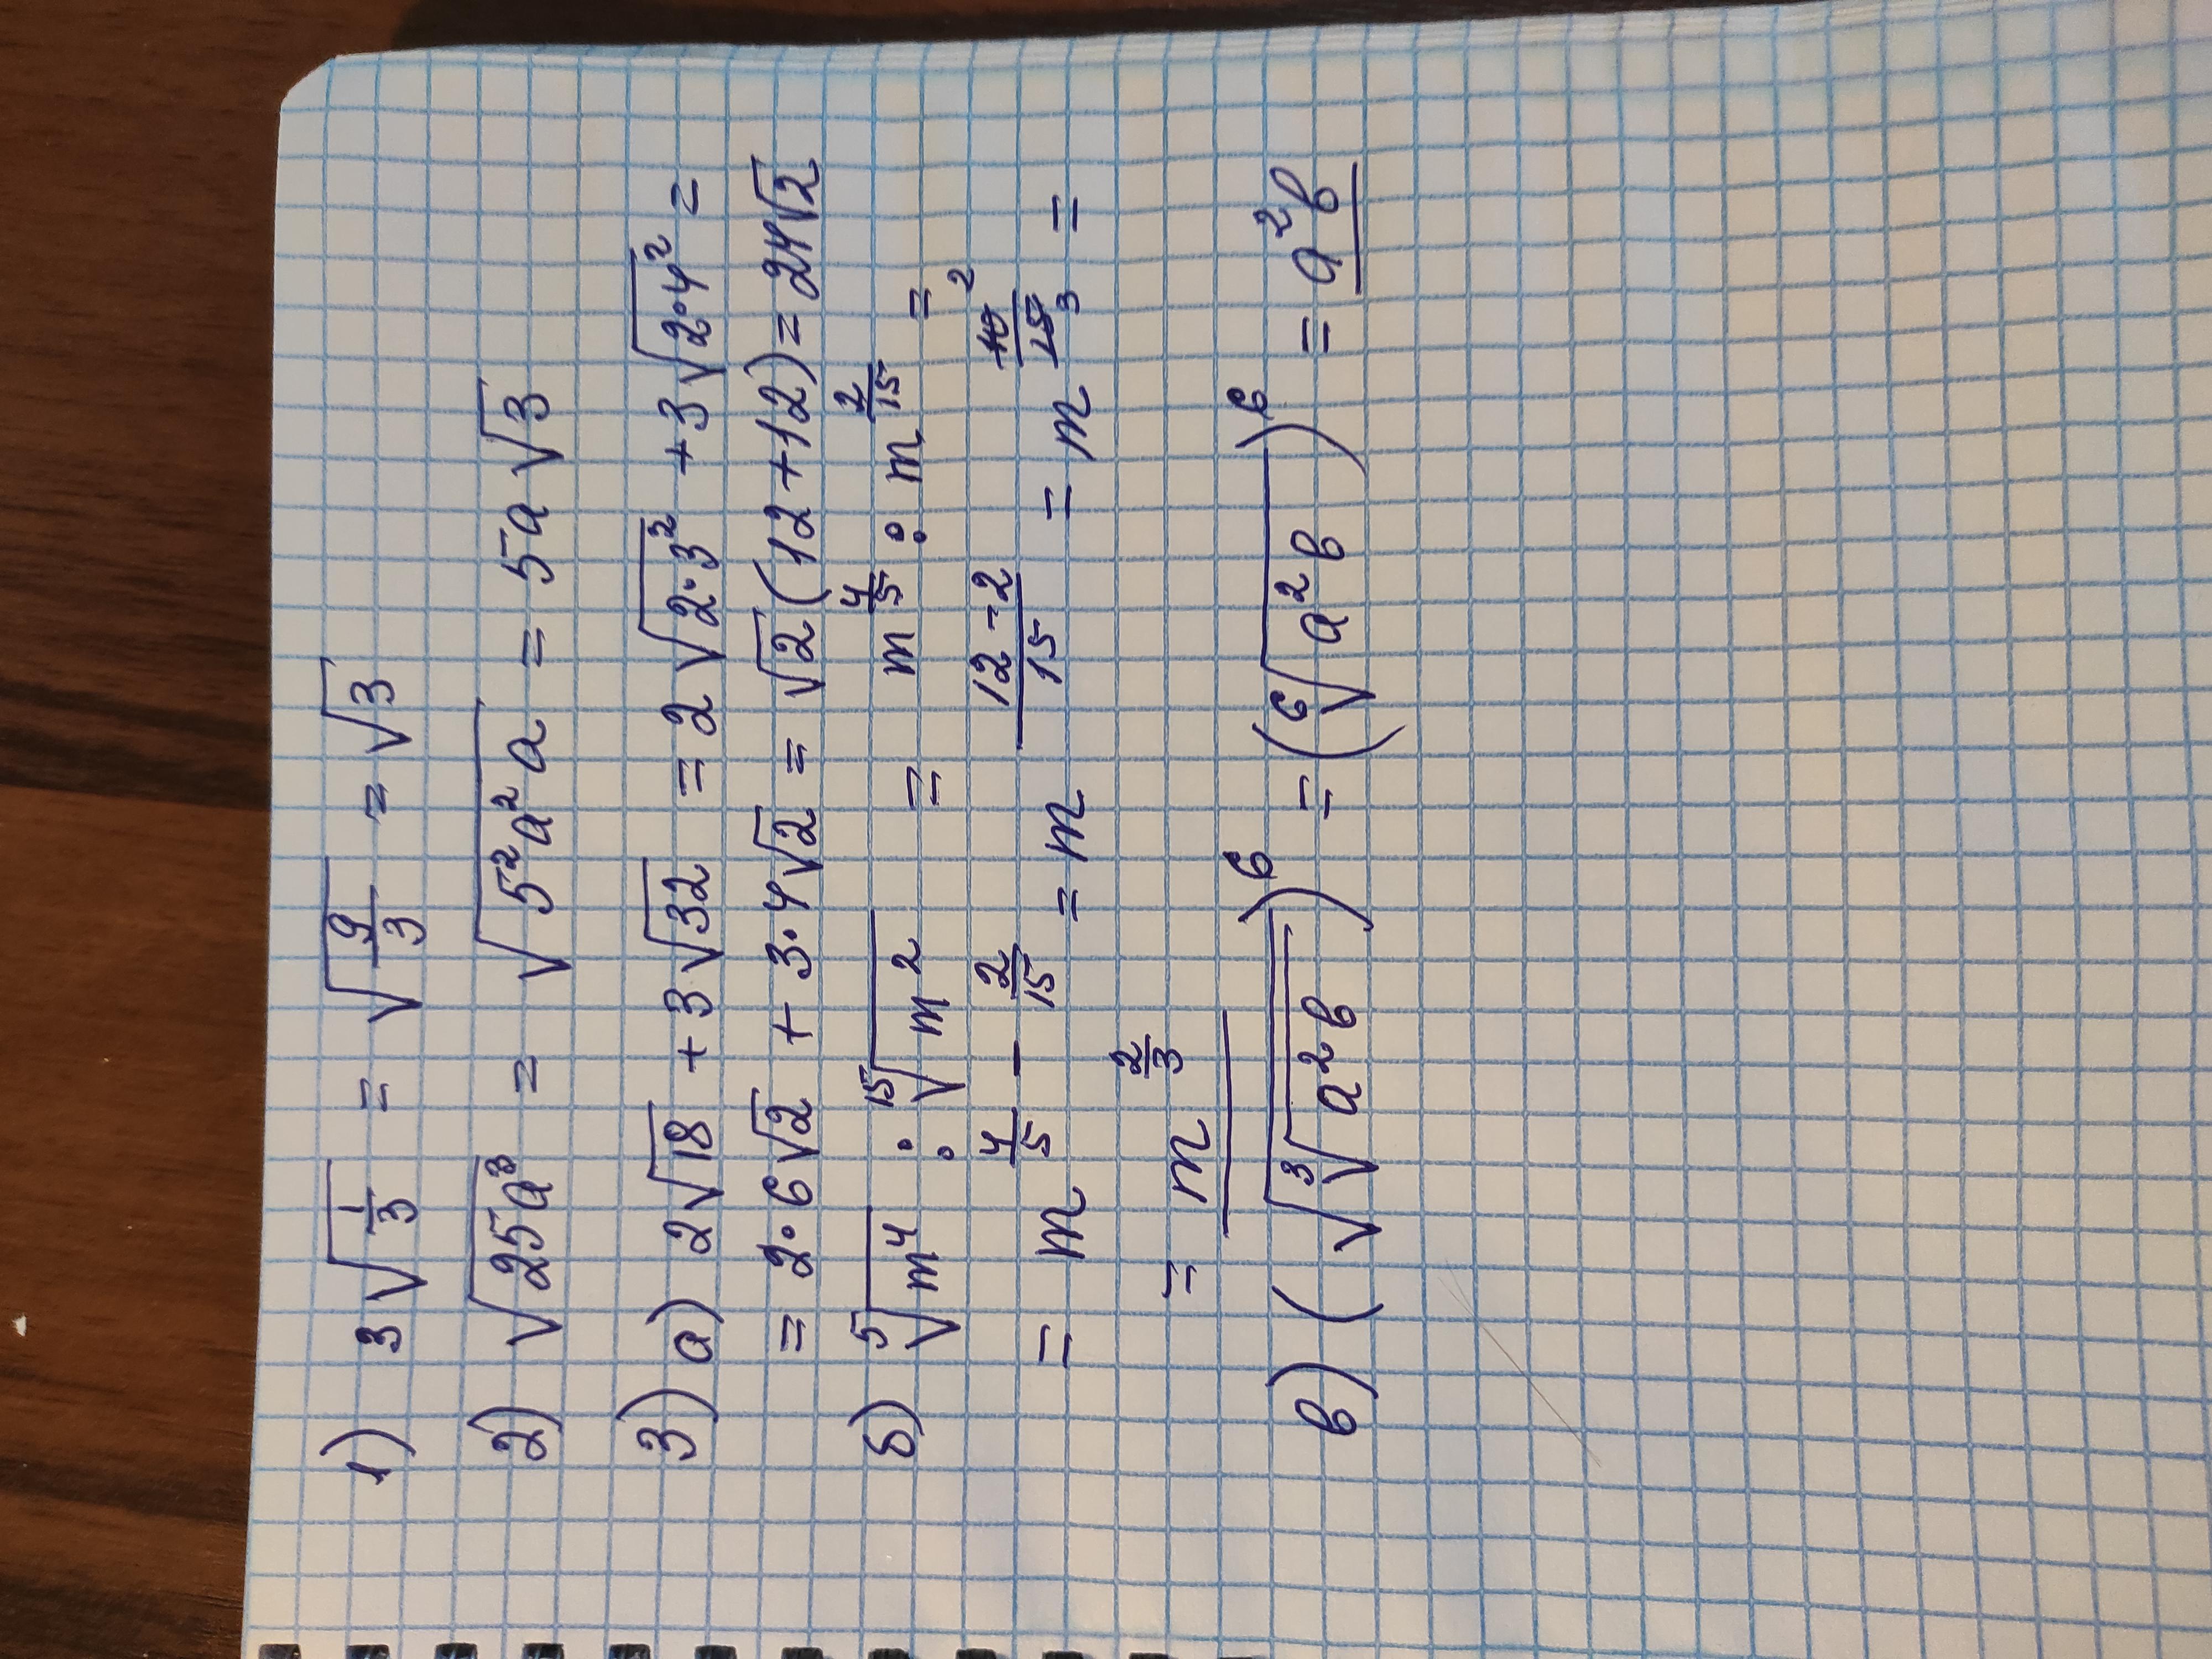 1) 3√(1/3) = √(9/3) = √3
2) √(25a³) = √(5²a²a) = 5a√3
3) а) 2√18 + 3√32 = 2√(2·3²) + 3√(2·4²) =
= 2·6√2 + 3·4√2 = √2(12+12) = 24√2
б) ⁵√(m⁴) : ¹⁵√(m²) = m^(4/5) : m^(2/15) =
= m^(4/5 - 2/15) = m^((12-2)/15) = m^(10/15) ² ₃ =
= m^(2/3)
в) (√(³√(a²b)))⁶ = (⁶√(a²b))⁶ = a²b